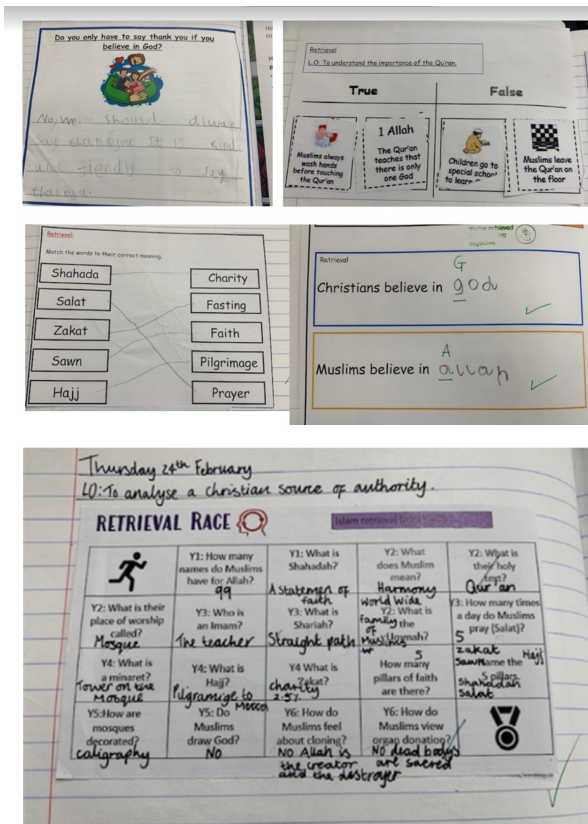 Do you only have to say thank you if you
believe in God?
No, We should alway
say thankyou It is kind
and fiendly to say
Retrieval
L.O: To understand the importance of the Qu'ran.
True
False
Muslims always
wash hands
before touching
the Qur'an
1 Allah
The Qur'an
teaches that
there is only
one God
Children go to
special school
to learn
Muslims leave
the Qur'an on
the floor
Retrieval:
Match the words to their correct meaning.
Shahada
Salat
Zakat
Sawn
Hajj
Charity
Fasting
Faith
Pilgrimage
Prayer
Retrieval
G
Christians believe in god
A
Muslims believe in allah
Thursday 24th February
LO: To analyse a christian source of authority.
RETRIEVAL RACE
Islam retrieval
Y1: How many
names do Muslims
have for Allah?
99
Y1: What is
Shahadah?
A Statemen of
faith
Y2: What
does Muslim
mean?
Harmony
Y2: What is
their holy
text?
Qur'an
Y2: What is their
place of worship
called?
Mosque
Y3: Who is
an Imam?
The teacher
Y3: What is
Shariah?
Straight path
World Wide
family of Muslims
Y2: What is
the Ummah?
Y3: How many times
a day do Muslims
pray (Salat)?
5
Y4: What is
a minaret?
Tower on the
Mosque
Y4: What is
Hajj?
Pilgramige to
Mecca
Y4 What is
Zakat?
charity
2.5%
5
How many
pillars of faith
are there?
Name the
5 pillars
zakat
Sawn
Hajj
Shahadah
Salat
Y5:How are
mosques
decorated?
caligraphy
Y5: Do
Muslims
draw God?
NO
Y6: How do
Muslims feel
about cloning?
NO Allah is
the creator
and the destroyer
Y6: How do
Muslims view
organ donation?
NO dead bodys
are sacred